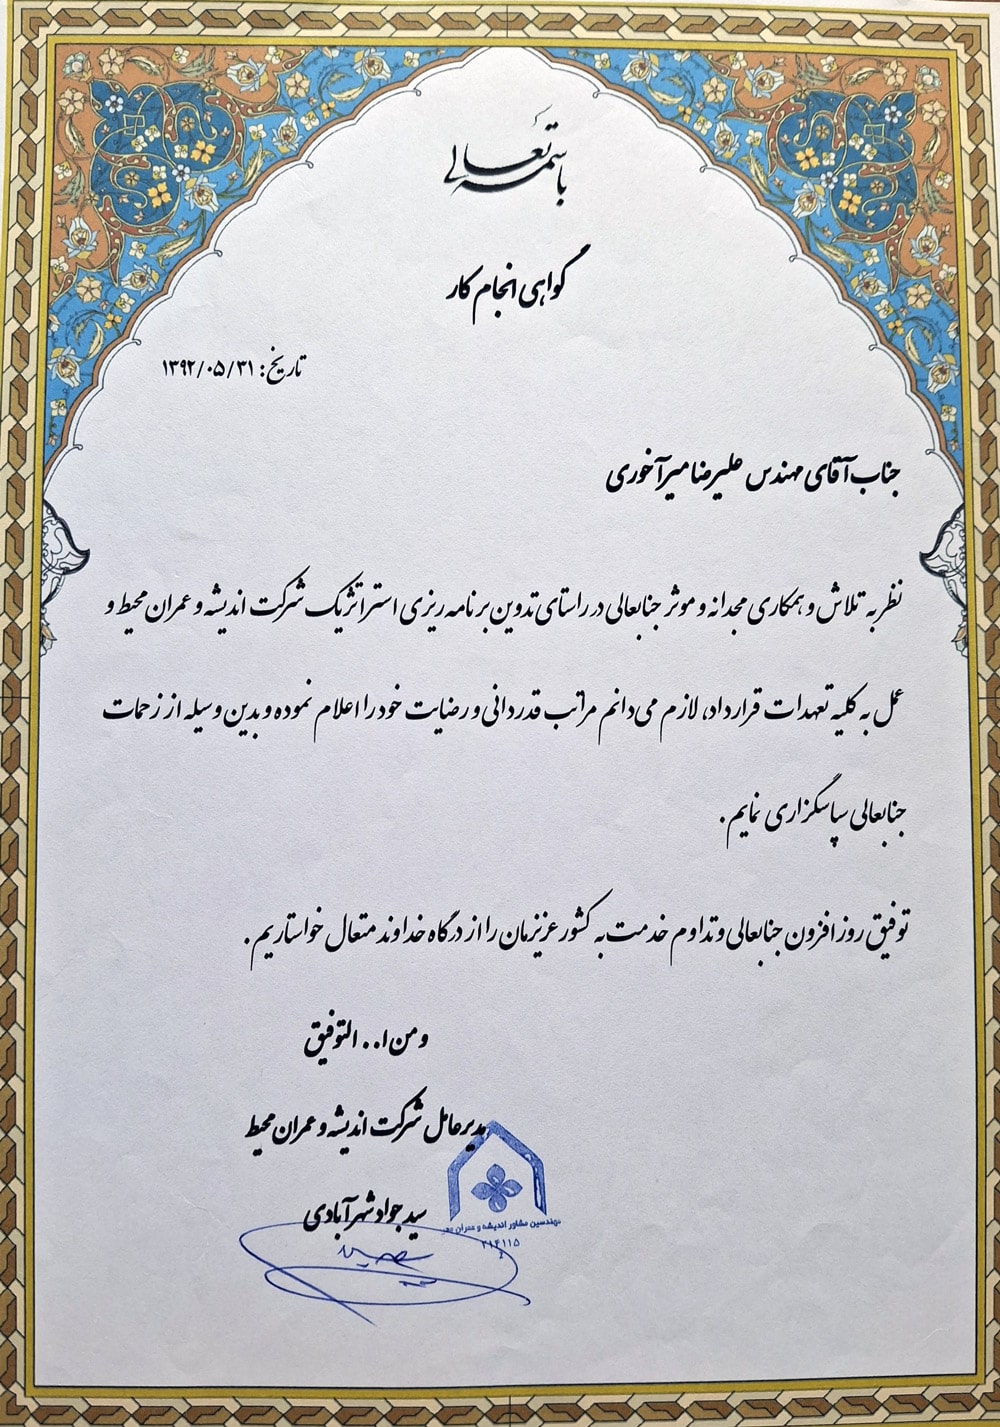 باسمه تعالی
گواهی انجام کار
تاریخ: ۱۳۹۲/۰۵/۳۱
جناب آقای مهندس علیرضا میرآخوری
نظر به تلاش و همکاری مجدانه و موثر جنابعالی در راستای تدوین برنامه ریزی استراتژیک شرکت اندیشه و عمران محیط و
عمل به کلیه تعهدات قرارداد، لازم می دانم مراتب قدردانی و رضایت خود را اعلام نموده و بدین وسیله از زحمات
جنابعالی سپاسگزاری نمایم.
توفیق روز افزون جنابعالی و تداوم خدمت به کشور عزیزمان را از درگاه خداوند متعال خواستاریم.
و من ا.. التوفیق
مدیرعامل شرکت اندیشه و عمران محیط
سید جواد شهرآبادی
مهندسین مشاور اندیشه و عمران